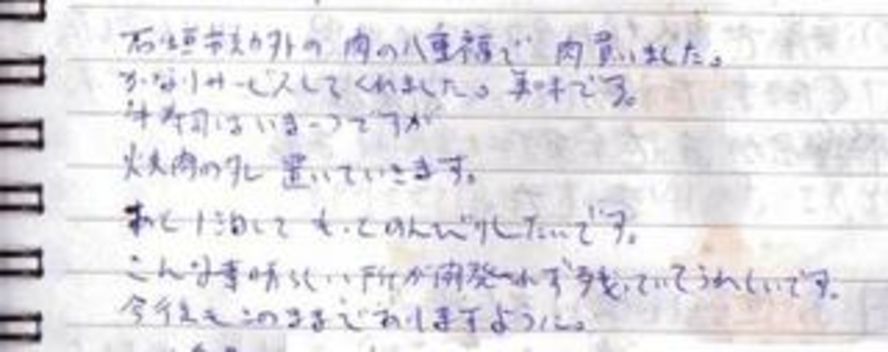 石垣市内の 肉の八重福で 肉買いました。
かなりサービスしてくれました。美味です。
牛寿司はいま一つですが
焼肉のタレ 置いていきます。
あと1泊して もっとのんびりしたいです。
こんな素晴らしい所が開発されず残っていてうれしいです。
今後もこのままでありますように。